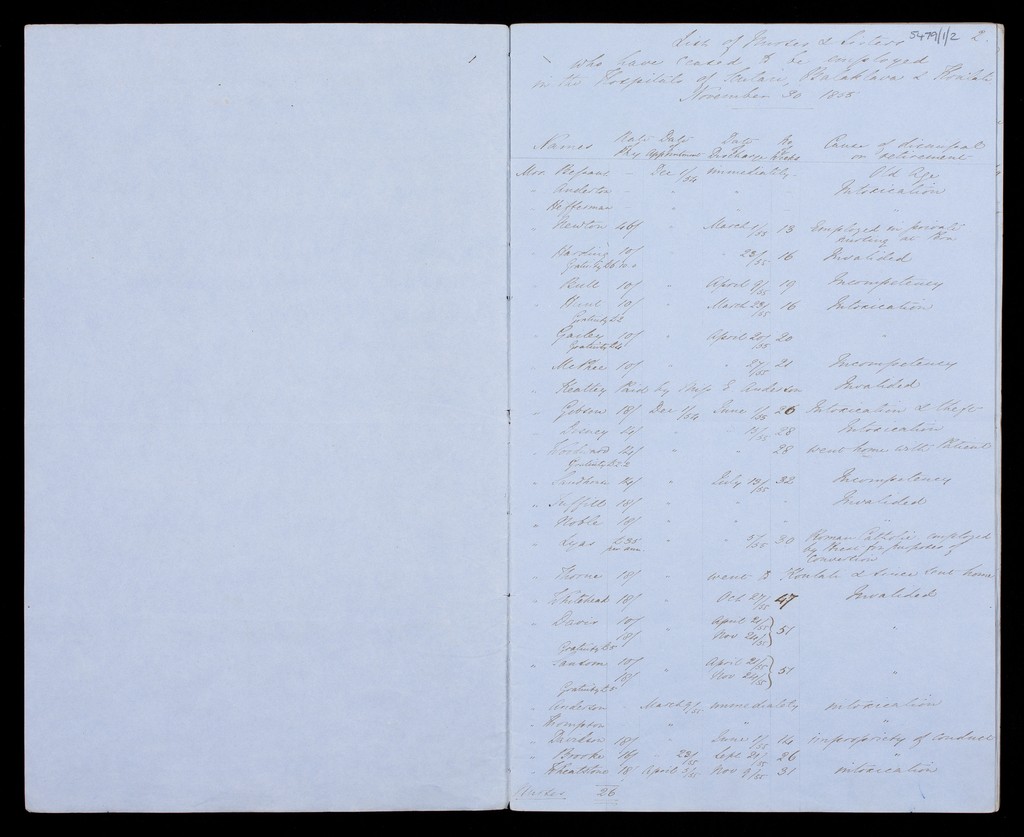 5479/1/2 2.
List of Nurses & Sisters
who have ceased to be employed
in the Hospitals of Scutari, Balaklava & Koulali
November 30 1855
Names Rate Pay Date Appointment Date Discharge No Weeks Cause of dismissal or retirement
Mrs Dec 1/54 immediately Old Age
" Anderton - " " - Intoxication
" Heffernan - " " - "
" Newton 16/ " March 1/55 13 Employed in private
nursing at
" Harding 10/ " " 23/55 16 Invalided
Gratuity
" Bull 10/ " April 9/55 19 Incompetency
" Hunt 10/ " March 23/55 16 Intoxication
Gratuity £2
" 10/ " April 20/55 20 "
Gratuity £4
" McPhee 10/ " " 27/55 21 Incompetency
" Paid by Miss E. Anderson Invalided
" Gibson 18/ Dec 1/54 June 1/55 26 Intoxication & theft
" " " 28 Intoxication
" " " 28 went home with Patient
Gratuity £2 2
" " July 13/55 32 Incompetency
" 18/ " " " " Invalided
" Noble 10/ " " " " "
" £35 " " 5/55 30 Roman Catholic employed
per ann by these for purposes of
Conversion
" Thorne 10/ " went to Koulali & since sent home
" Whitehead 18/ " Oct 27/55 47 Invalided
" Davis 10/ " April 21/55
18/ Nov 24/55 } 51 "
Gratuity £5
" Sansom 10/ " April 21/55
18/ Nov 24/55 } 51 "
Gratuity £5
" Anderson March 9/55 immediately intoxication
" Thompson " " "
" Davidson 18/ " June 17/55 14 impropriety of conduct
" Brooke 16/ " 23/55 Sept 21/55 26 "
" Wheatstone 18 April 5/55 Nov 9/55 31 intoxication
Nurses 26